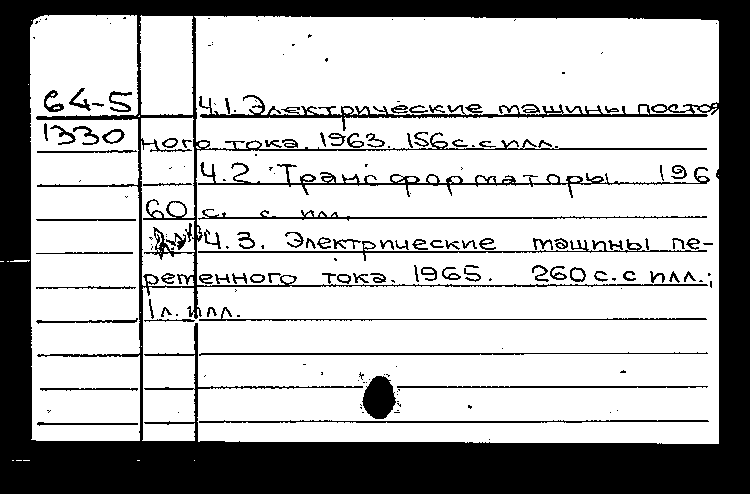 64-5 Ч.1. Электрические машины постоя
1330 ного тока. 1963. 156 с. с илл.
Ч.2. Трансформаторы. 196
60 с. с илл.
Ч.3. Электрические машины пе-
ременного тока. 1965. 260 с. с илл.;
1 л. илл.